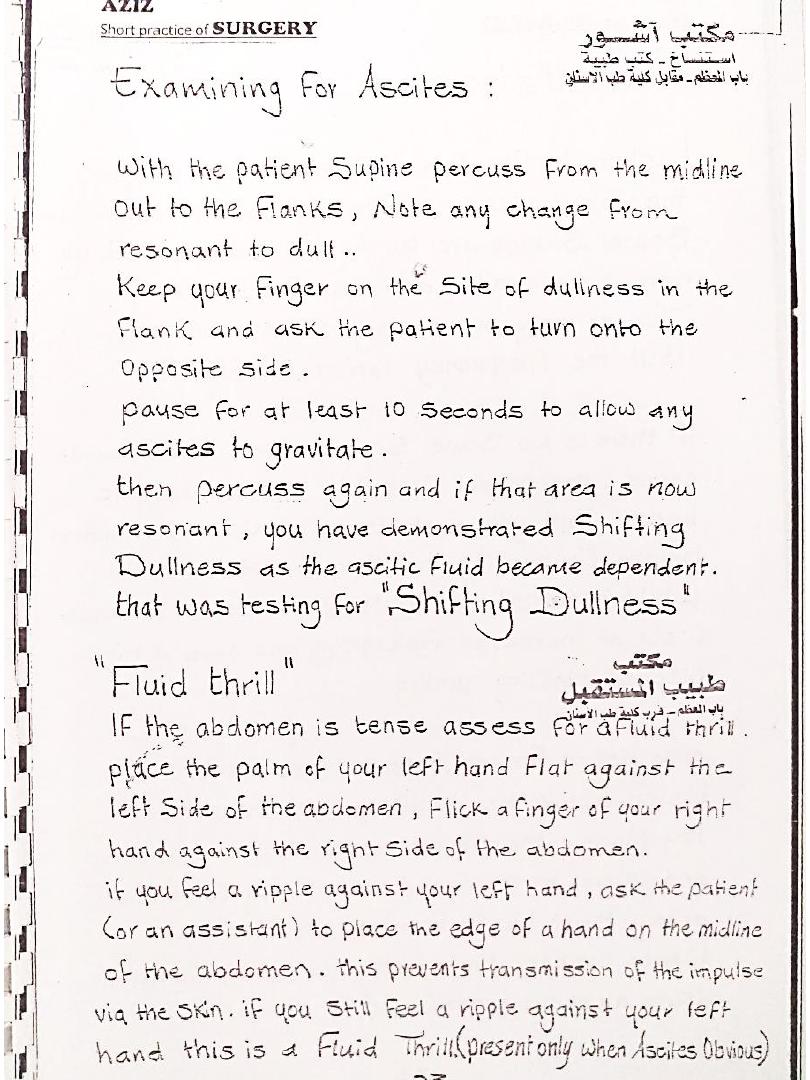 AZIZ
Short practice of SURGERY
مكتب آشور
استنساخ - كتب طبية
باب المعظم - مقابل كلية طب الاسنان
Examining For Ascites :
With the patient Supine percuss From the midline
Out to the Flanks, Note any change from
resonant to dull ..
Keep your Finger on the Site of dullness in the
Flank and ask the patient to turn onto the
Opposite side .
pause for at least 10 Seconds to allow any
ascites to gravitate .
then percuss again and if that area is now
resonant , you have demonstrated Shifting
Dullness as the ascitic Fluid became dependent .
that was testing for "Shifting Dullness"
"Fluid thrill"
مكتب
طبيب المستقبل
باب المعظم - قرب كلية طب الاسنان
IF the abdomen is tense assess for a fluid thrill .
place the palm of your left hand Flat against the
left Side of the abdomen , Flick a finger of your right
hand against the right Side of the abdomen .
if you feel a ripple against your left hand , ask the patient
(or an assistant) to place the edge of a hand on the midline
of the abdomen . this prevents transmission of the impulse
via the skin . if you Still Feel a ripple against your left
hand this is a Fluid Thrill (present only when Ascites Obvious)